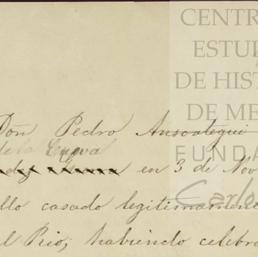 CENTR
ESTU
DE HIST
DE ME
FUNDA
Carlo
Don Pedro Ansoategui
de la Cueva
en 3 de Nov
llo casado legitimamen
el Rio, habiendo celebra